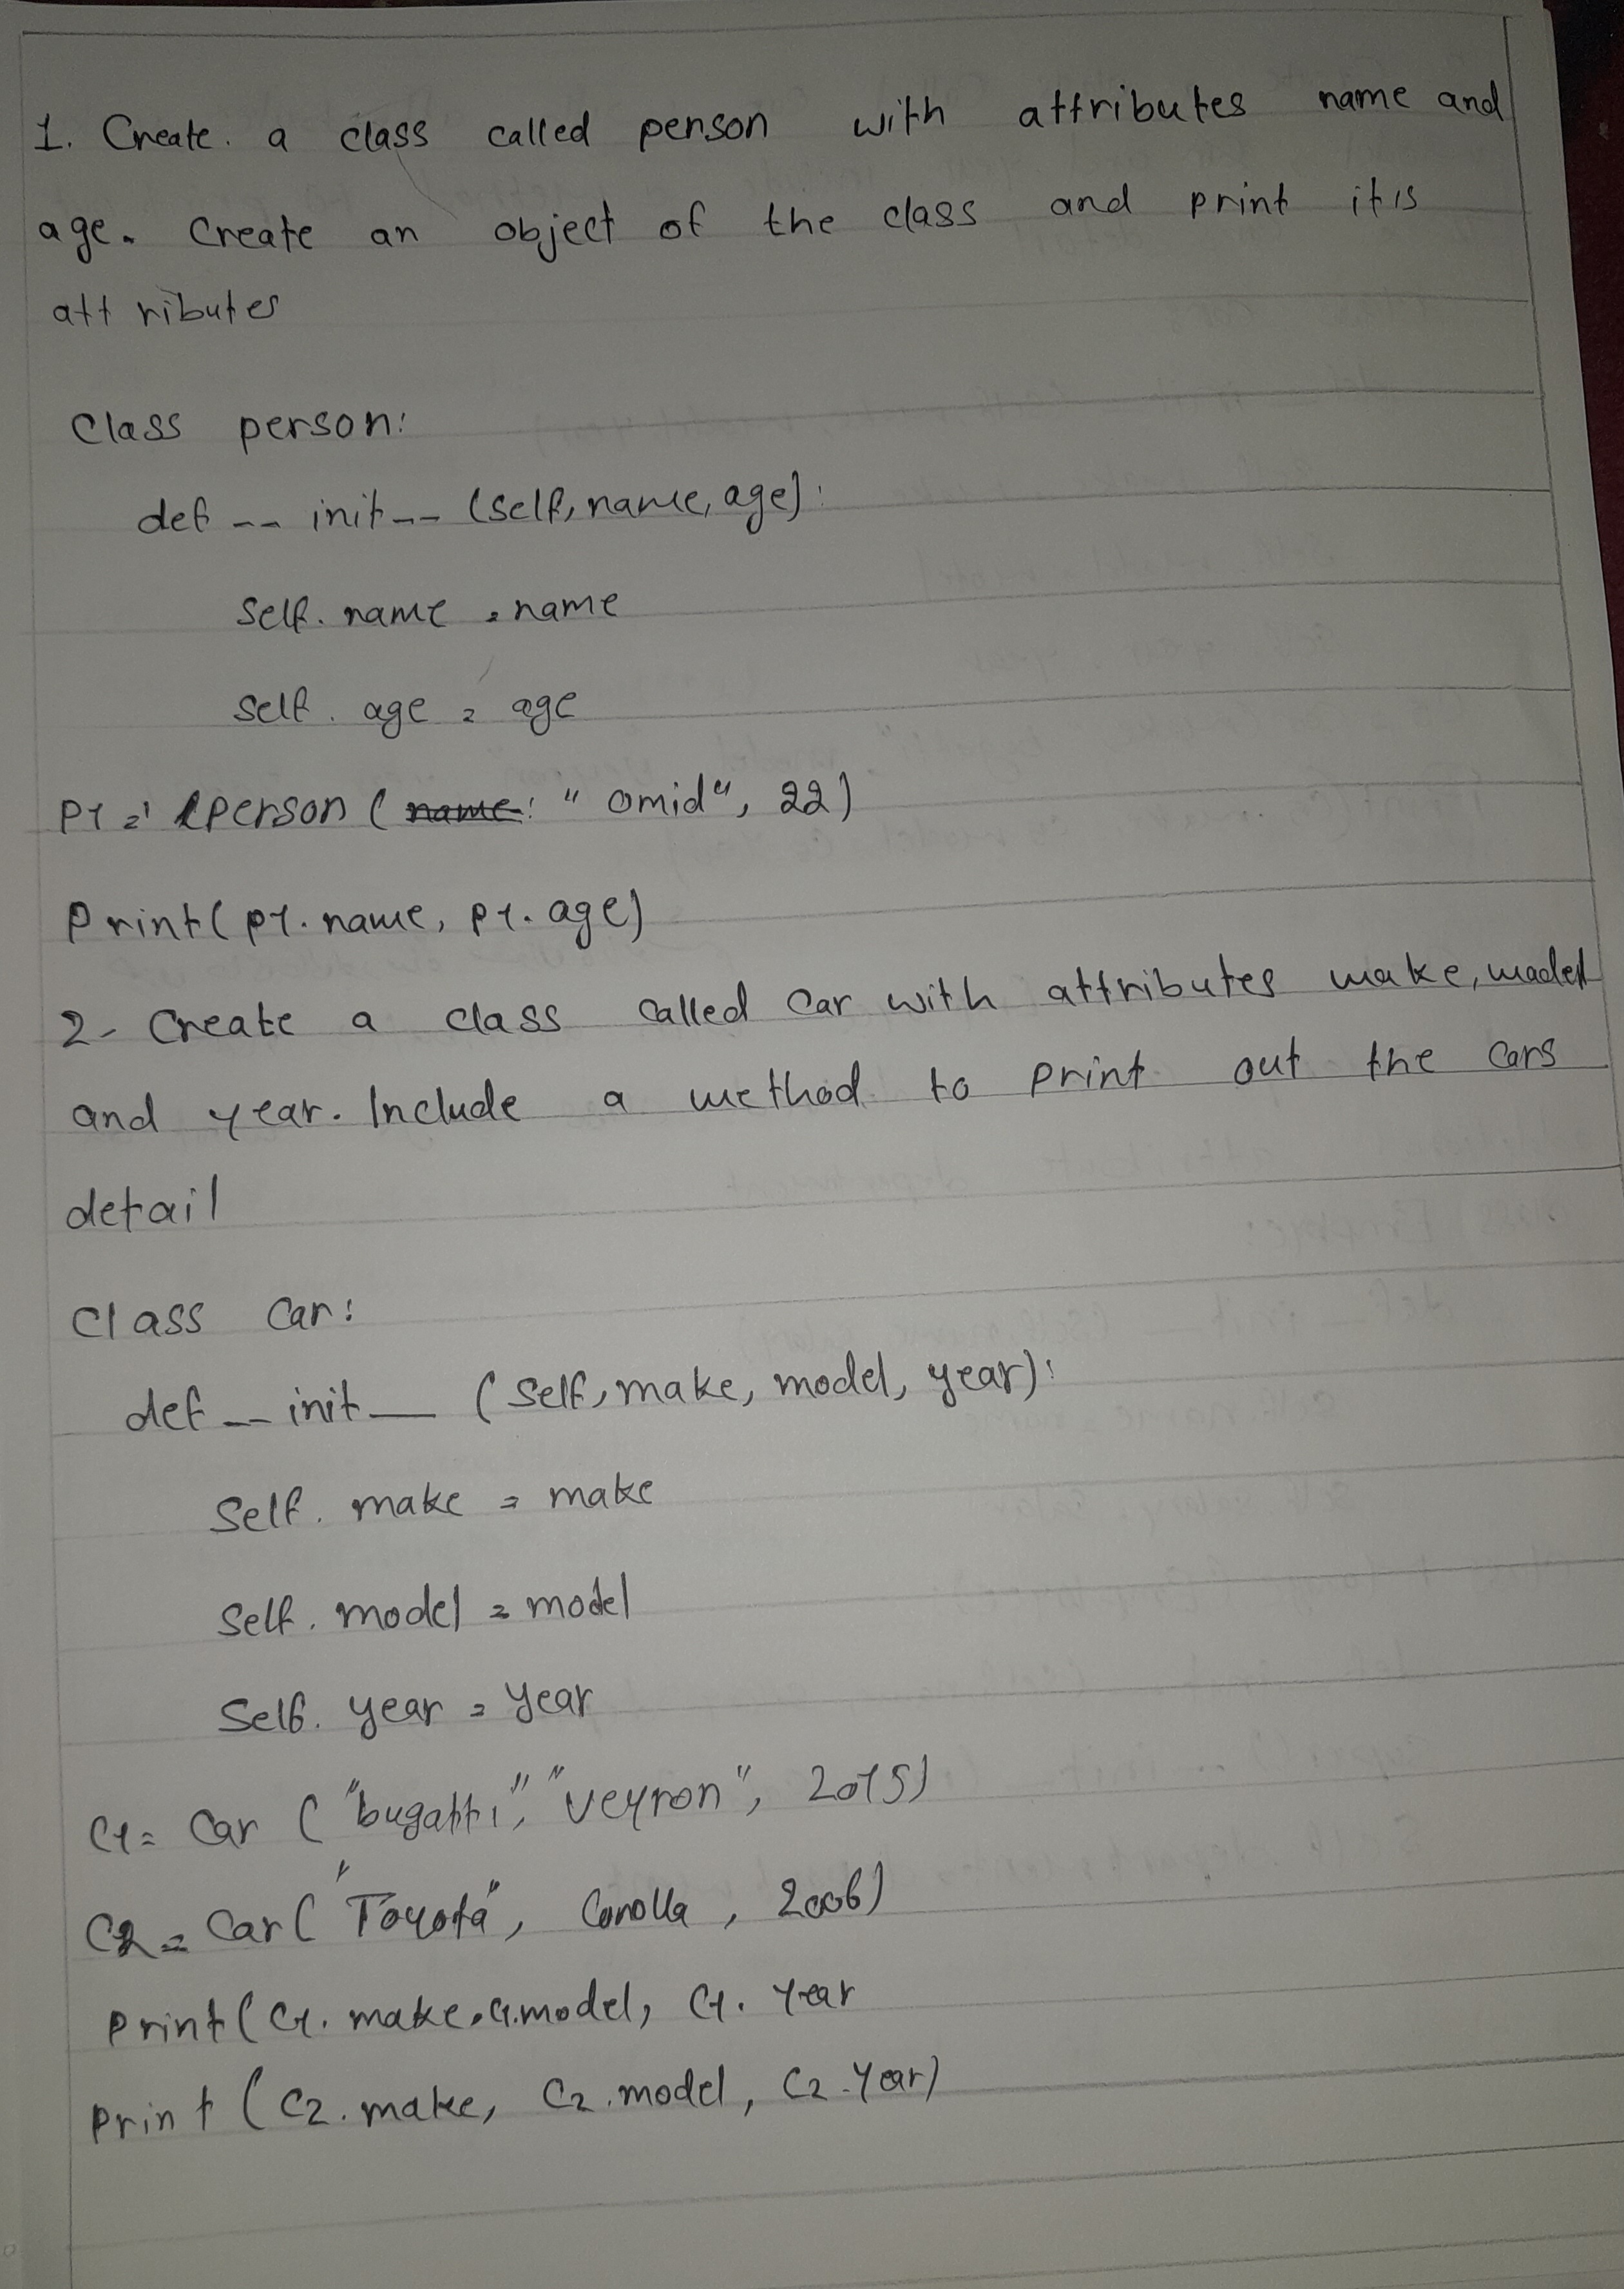 1. Create a class called person with attributes name and
age. Create an object of the class and print it is
attributes
Class person:
def -- init -- (self, name, age):
Self. name = name
Self. age = age
P1 = person ( name: "omid", 22)
Print(p1. name, p1. age)
2- Create a class called Car with attributes make, madel
and year. Include a method to print out the cars
detail
Class Car:
def __ init __ (Self, make, model, year):
Self. make = make
Self. model = model
Self. year = year
C1 = Car ("bugatti", "veyron", 2015)
C2 = Car ("Toyota", Corolla, 2006)
Print (C1. make, C1.model, C1. Year
Print (C2. make, C2. model, C2. Year)